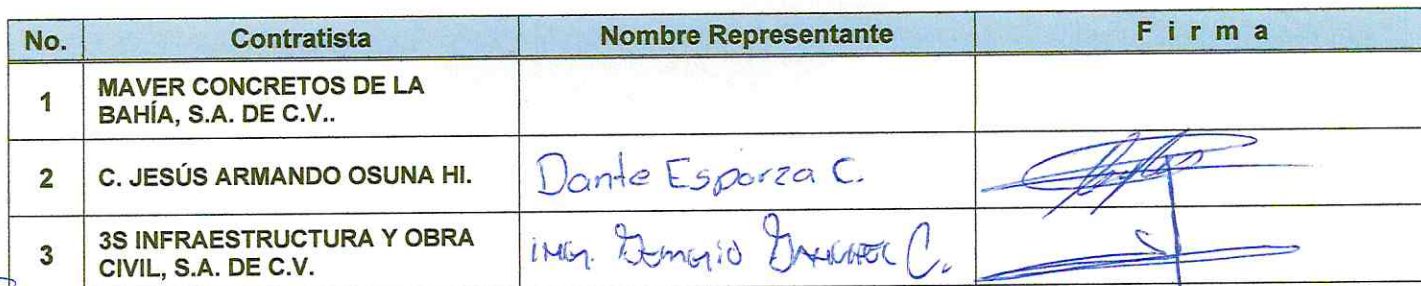 No. Contratista Nombre Representante Firma
1 MAVER CONCRETOS DE LA
BAHÍA, S.A. DE C.V..
2 C. JESÚS ARMANDO OSUNA HI. Dante Esparza C.
3 3S INFRAESTRUCTURA Y OBRA
CIVIL, S.A. DE C.V. ING. C.